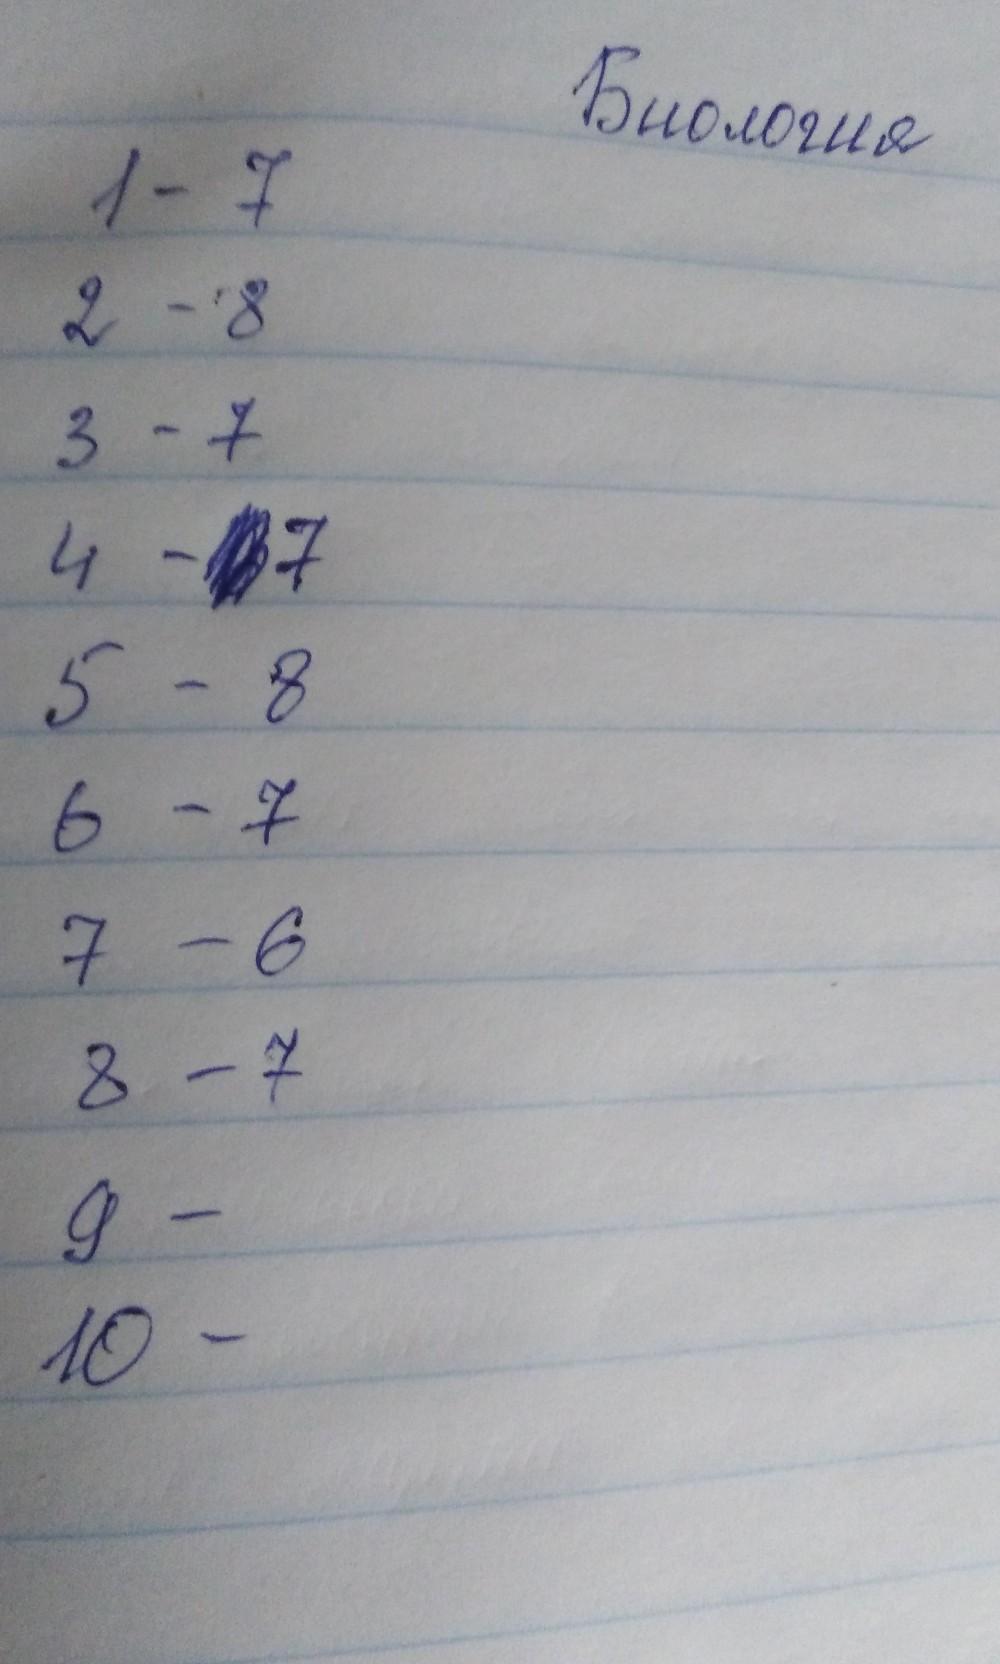 Биология
1 - 7
2 - 8
3 - 7
4 - 7
5 - 8
6 - 7
7 - 6
8 - 7
9 -
10 -